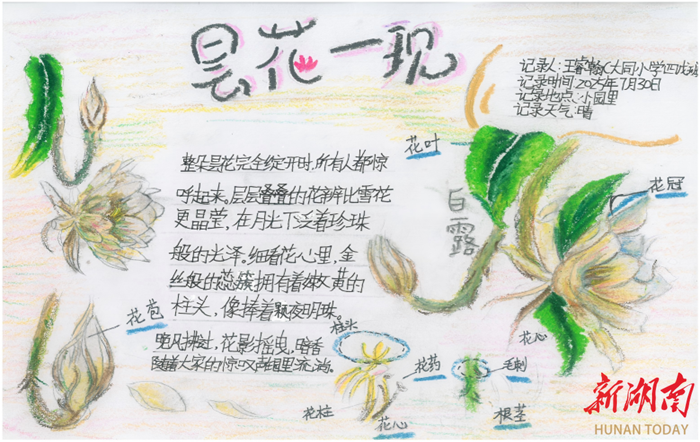 昙花一现
记录人:王睿翰(大同小学四
记录时间:2025年7月30日
记录地点:小园里
记录天气:晴
整朵昙花完全绽开时,所有人都惊
呼起来,层层叠叠的花瓣比雪花
更晶莹,在月光下泛着珍珠
般的光泽。细看花心里,金
丝般的蕊簇拥有着嫩黄的
柱头,像捧着颗夜明珠。
晚风拂过,花影摇曳,暗香
随着大家的惊叹声在园里流淌。
花叶
花冠
白露
花苞
花心
柱头
花药
毛刺
花柱
花心
根茎
新湖南
HUNAN TODAY